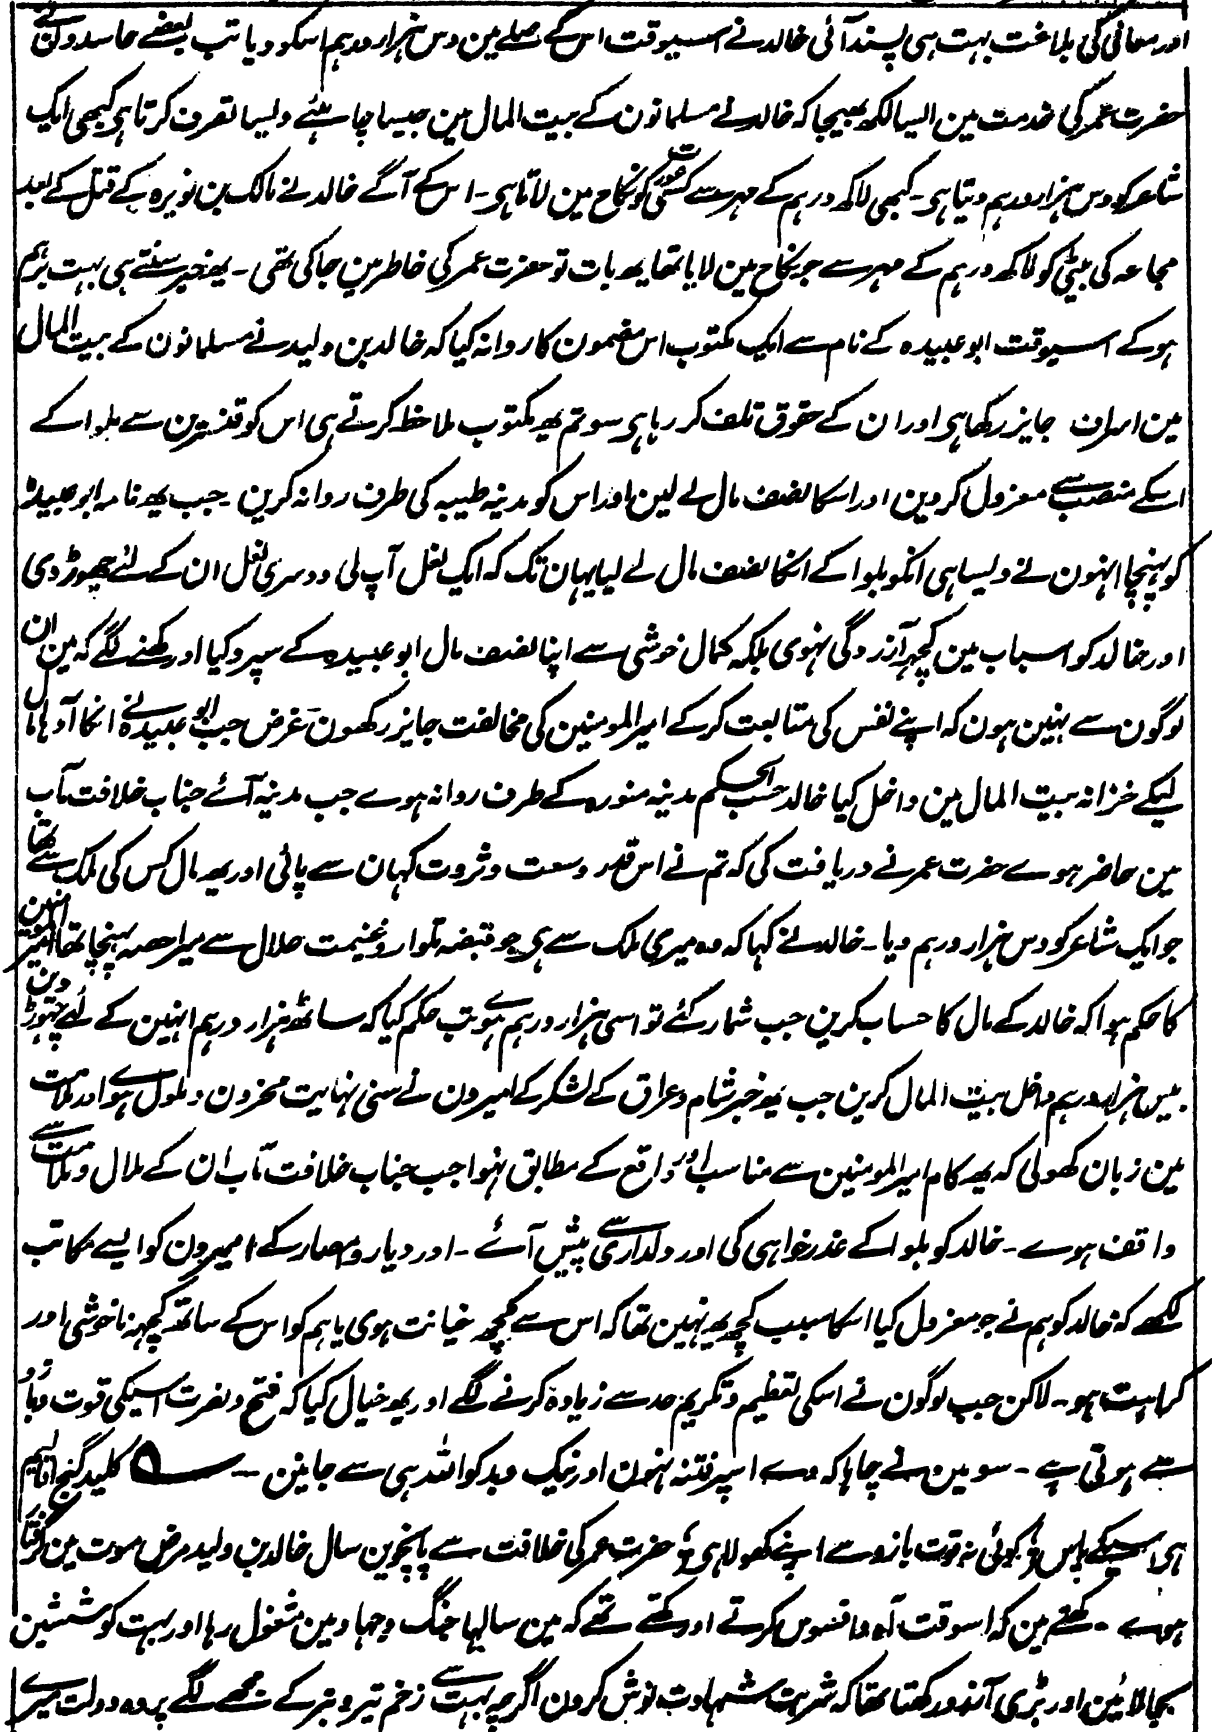 اور معانی کی بلاغت بہت ہی پسند آئی خالد نے اسیوقت اس کے صلے مین دس ہزار درہم اسکو دیا تب بعضے حاسدون نے
حضرت عمر کی خدمت مین ایسا لکھ بھیجا کہ خالد نے مسلمانون کے بیت المال مین جیسا چاہئے ویسا تصرف کرتا ہی کبھی ایک
شاعر کو دس ہزار درہم دیتا ہی ۔ کبھی لاکھ درہم کے مہر سے کسی عورت کو نکاح مین لاتا ہی ۔ اس کے آگے خالد نے مالک بن نویرہ کے قتل کے بعد
مجاعہ کی بیٹی کو لاکھ درہم کے مہر سے جو نکاح مین لایا تھا یھ بات تو حضرت عمر کی خاطر مین جا کی تھی ۔ یھ خبر سنتے ہی بہت برہم
ہو کے اسیوقت ابو عبیدہ کے نام سے ایک مکتوب اس مضمون کا روانہ کیا کہ خالد بن ولید نے مسلمانون کے بیت المال
مین اسراف جایز رکھا ہی اور ان کے حقوق تلف کر رہا ہی سو تم یھ مکتوب ملاحظہ کرتے ہی اس کو قنسرین سے بلوا کے
اسکے منصب سے معزول کردین اور اسکا نصف مال لے لین اور اس کو مدینہ طیبہ کی طرف روانہ کرین ۔ جب یھ نامہ ابو عبیدہ
کو پہنچا انہون نے ویسا ہی انکو بلوا کے انکا نصف مال لے لیا یہان تک کہ ایک نعل آپ لی دوسری نعل ان کے لئے چھوڑ دی
اور خالد کو اس باب مین کچھ آزردگی نہوی بلکہ کمال خوشی سے اپنا نصف مال ابو عبیدہ کے سپرد کیا اور کہنے لگے کہ مین ان
لوگون سے نہین ہون کہ اپنے نفس کی متابعت کر کے امیر المومنین کی مخالفت جایز رکھون غرض جب ابو عبیدہ نے انکا آدھا مال
لیکے خزانہ بیت المال مین داخل کیا خالد حسب الحکم مدینہ منورہ کے طرف روانہ ہوے جب مدینہ آئے جناب خلافت مآب
مین حاضر ہوے حضرت عمر نے دریافت کی کہ تم نے اس قدر وسعت و ثروت کہان سے پائی اور یھ مال کس کی ملک سے تھا
جو ایک شاعر کو دس ہزار درہم دیا ۔ خالد نے کہا کہ وہ میری ملک سے ہی جو قبضہ تلوار و غنیمت حلال سے میرا حصہ پہنچا تھا امیر المومنین
کا حکم ہوا کہ خالد کے مال کا حساب کرین جب شمار کئے تو اسی ہزار درہم ہوے تب حکم کیا کہ ساٹھ ہزار درہم انہین کے لئے چھوڑ دین
بیس ہزار درہم داخل بیت المال کرین جب یھ خبر شام و عراق کے لشکر کے امیرون نے سنی نہایت محزون و ملول ہوے اور ملامت
مین زبان کھولی کہ یھ کام امیر المومنین سے مناسب اور واقع کے مطابق نہوا جب جناب خلافت مآب ان کے ملال و ملامت سے
واقف ہوے ۔ خالد کو بلوا کے عذر خواہی کی اور دلداری سے پیش آئے ۔ اور دیار و امصار کے امیرون کو ایسے مکاتب
لکھے کہ خالد کو ہم نے جو معزول کیا اسکا سبب کچھ یھ نہین تھا کہ اس سے کچھ خیانت ہوی یا ہم کو اس کے ساتھ کچھ ناخوشی اور
کراہیت ہو ۔ لاکن جب لوگون نے اسکی تعظیم و تکریم حد سے زیادہ کرنے لگے اور یھ خیال کیا کہ فتح و نصرت اسیکی قوت و بازو
سے ہوتی ہے ۔ سو مین نے چاہا کہ وے اسپر فتنہ نہون اور نیک و بد کو اللہ ہی سے جانین ۔ ۵ کلید گنج اقالیم
ہی اسیکے پاس ؤ کوئی نہ قوت بازو سے اپنے کھولا ہی ؤ حضرت عمر کی خلافت سے پانچوین سال خالد بن ولید مرض موت مین گرفتار
ہوے ۔ کہتے مین کہ اسوقت آہ و افسوس کرتے اور کہتے تھے کہ مین سالہا جنگ و جہاد مین مشغول رہا اور بہت کوششین
بجا لائین اور بڑی آرزو رکھتا تھا کہ شربت شہادت نوش کرون اگرچہ بہت سے زخم تیر و تبر کے مجھے لگے پر وہ دولت میرے